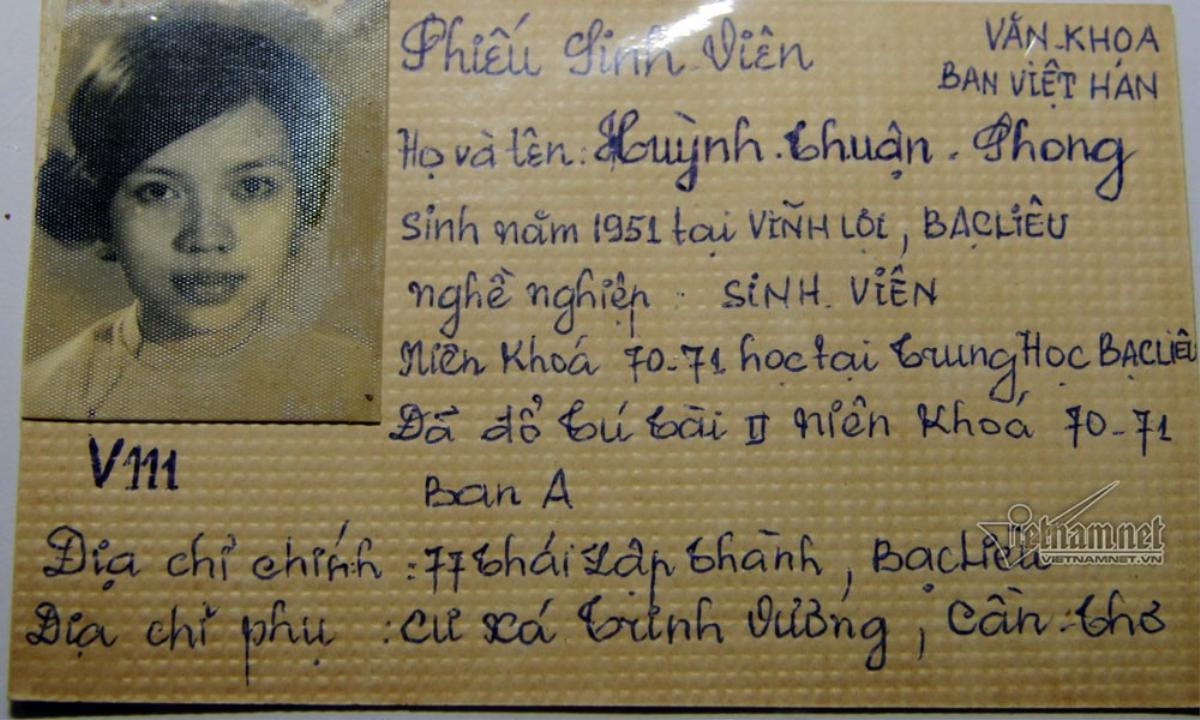 Phiếu Sinh Viên
VĂN-KHOA
BAN VIỆT HÁN
Họ và tên: Huỳnh. Thuận. Phong
Sinh năm 1951 tại VĨNH LỢI, BẠCLIÊU
nghề nghiệp: SINH. VIÊN
Niên Khoá 70-71 học tại Trung Học BẠCLIÊU
Đã đổ Tú Tài II Niên Khoá 70-71
Ban A
V111
Địa chỉ chính: 77 Thái Lập Thành, BạcLiêu
Địa chỉ phụ: Cư xá Trinh Vương, Cần-Thơ
vietnamnet
VIETNAMNET.VN